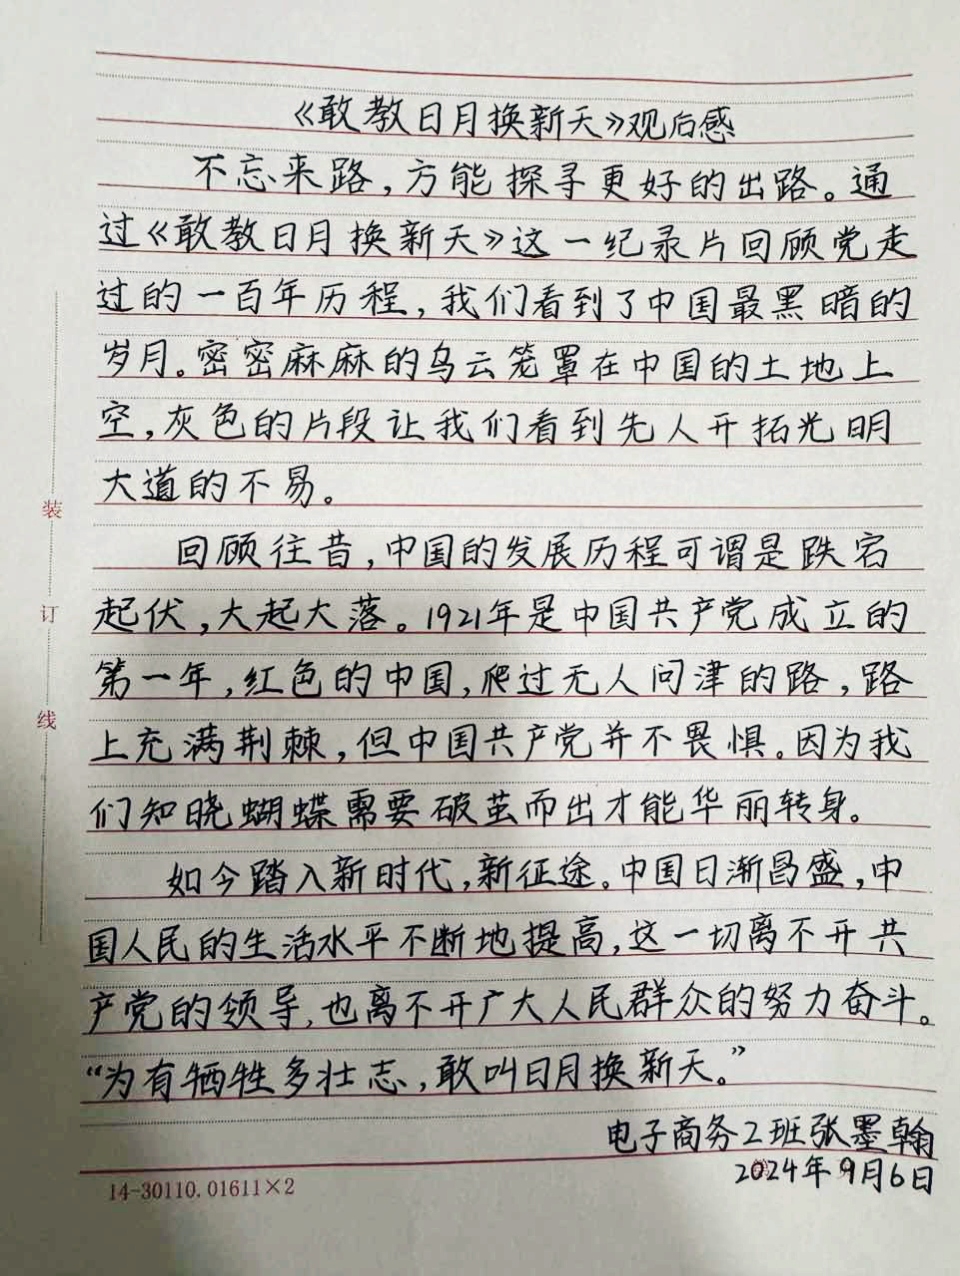 《敢教日月换新天》观后感
不忘来路，方能探寻更好的出路。通
过《敢教日月换新天》这一纪录片回顾党走
过的一百年历程，我们看到了中国最黑暗的
岁月。密密麻麻的乌云笼罩在中国的土地上
空，灰色的片段让我们看到先人开拓光明
大道的不易。
回顾往昔，中国的发展历程可谓是跌宕
起伏，大起大落。1921年是中国共产党成立的
第一年，红色的中国，爬过无人问津的路，路
上充满荆棘，但中国共产党并不畏惧。因为我
们知晓蝴蝶需要破茧而出才能华丽转身。
如今踏入新时代，新征途。中国日渐昌盛，中
国人民的生活水平不断地提高，这一切离不开共
产党的领导，也离不开广大人民群众的努力奋斗。
“为有牺牲多壮志，敢叫日月换新天。”
电子商务2班张墨翰
2024年9月6日
装
订
线
14-30110.01611×2